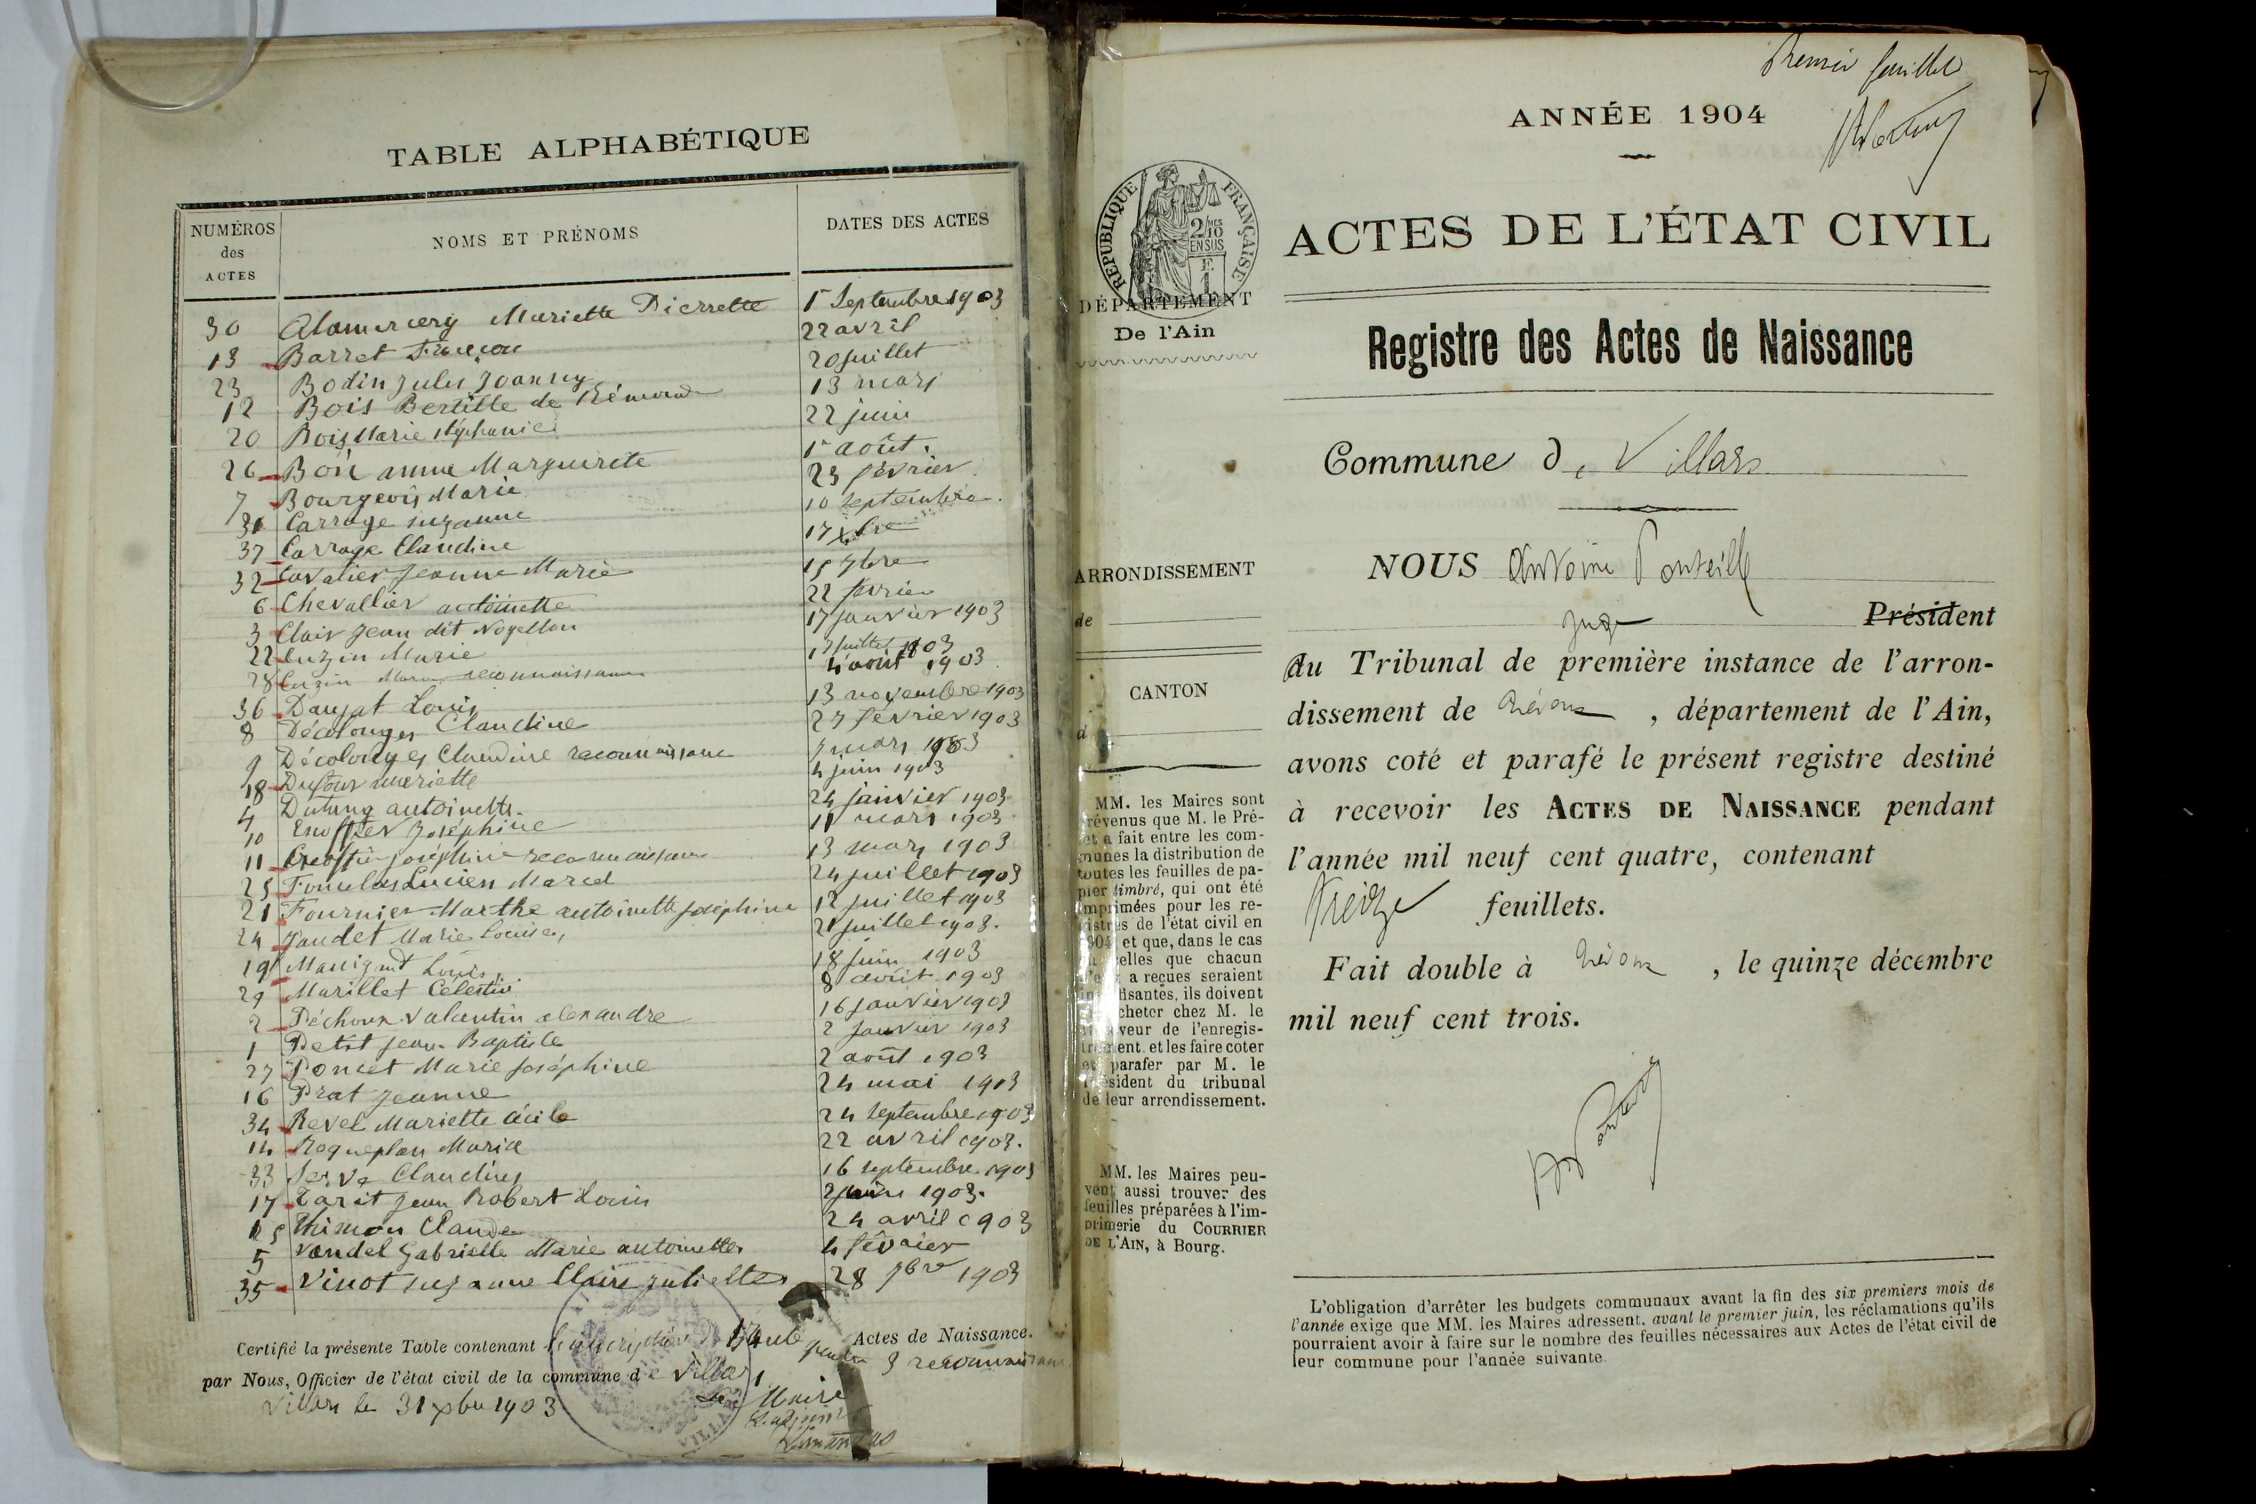 TABLE ALPHABÉTIQUE
NUMÉROS des ACTES
NOMS ET PRÉNOMS
DATES DES ACTES
30 Alamercery Mariette Pierrette 1r Septembre 1903
13 Barret François 22 avril
23 Bodin Jules Joanny 20 juillet
12 Bois Bertille de 13 mars
20 Bois Marie Stéphanie 22 juin
26 Bon anne Marguerite 1r août
7 Bourgeois Marie 23 février
31 Carrage suzanne 10 septembre
37 Carrage Claudine 17 Xbre
32 Cavalier Jeanne Marie 15 7bre
6 Chevallier antoinette 22 février
3 Clair Jean dit Noyellon 17 janvier 1903
22 Cuzin Marie juillet 1903
28 Cuzin Marie reconnaissance 4 août 1903
36 Daujat Louis 13 novembre 1903
8 Décolonges Claudine 27 février 1903
9 Décolonges Claudine reconnaissance 7 mars 1903
18 Dufour mariette 4 juin 1903
4 Dutang antoinette 24 janvier 1903
10 Joséphine 11 mars 1903
11 joséphine reconnaissance 13 mars 1903
25 Lucien Marcel 24 juillet 1903
21 Fournier Marthe antoinette joséphine 12 juillet 1903
24 Jaudet Marie Louise 21 juillet 1903.
19 Manigand Louis 18 juin 1903
29 Marillet Célestin 8 août 1903
2 Péchoux Valentin alexandre 16 janvier 1903
1 Petit Jean-Baptiste 2 janvier 1903
27 Poncet Marie Joséphine 2 août 1903
16 Prat Jeanne 24 mai 1903
34 Revel Mariette Cécile 24 septembre 1903
14 Roqueplan Maria 22 avril 1903.
33 Serve Claudius 16 septembre 1903
17 Tarit Jean Robert Louis 2 juin 1903.
15 Thimon Claude 24 avril 1903
5 Vandel Gabrielle Marie antoinette 4 février
35 Vinot suzanne Claire Juliette 28 7bre 1903
Certifié la présente Table contenant Actes de Naissance.
3 reconnaissances
par Nous, Officier de l'état civil de la commune de Villars
Villars le 31 xbre 1903
Maire
Premier feuillet
ANNÉE 1904
RÉPUBLIQUE FRANÇAISE
2/10 EN SUS
E 1
ACTES DE L'ÉTAT CIVIL
DÉPARTEMENT
De l'Ain
Registre des Actes de Naissance
Commune de Villars
NOUS Antoine Ponteille
juge Président
du Tribunal de première instance de l'arron-
dissement de Trévoux, département de l'Ain,
avons coté et parafé le présent registre destiné
à recevoir les ACTES DE NAISSANCE pendant
l'année mil neuf cent quatre, contenant
treize feuillets.
Fait double à Trévoux, le quinze décembre
mil neuf cent trois.
ARRONDISSEMENT
de
CANTON
d
MM. les Maires sont
prévenus que M. le Pré-
fet a fait entre les com-
munes la distribution de
toutes les feuilles de pa-
pier timbré, qui ont été
imprimées pour les re-
gistres de l'état civil en
1904 et que, dans le cas
où celles que chacun
d'eux a reçues seraient
insuffisantes, ils doivent
en acheter chez M. le
receveur de l'enregis-
trement et les faire coter
et parafer par M. le
Président du tribunal
de leur arrondissement.
MM. les Maires peu-
vent aussi trouver des
feuilles préparées à l'im-
primerie du COURRIER
DE L'AIN, à Bourg.
L'obligation d'arrêter les budgets communaux avant la fin des six premiers mois de
l'année exige que MM. les Maires adressent, avant le premier juin, les réclamations qu'ils
pourraient avoir à faire sur le nombre des feuilles nécessaires aux Actes de l'état civil de
leur commune pour l'année suivante.